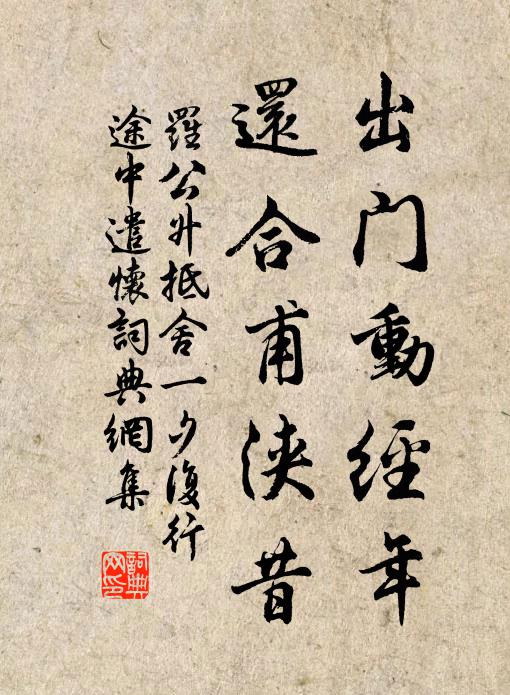 出门動經年
還合甫浹昔
羅公升抵舍一夕復行
途中遣懷詞典網集
詞典
网印